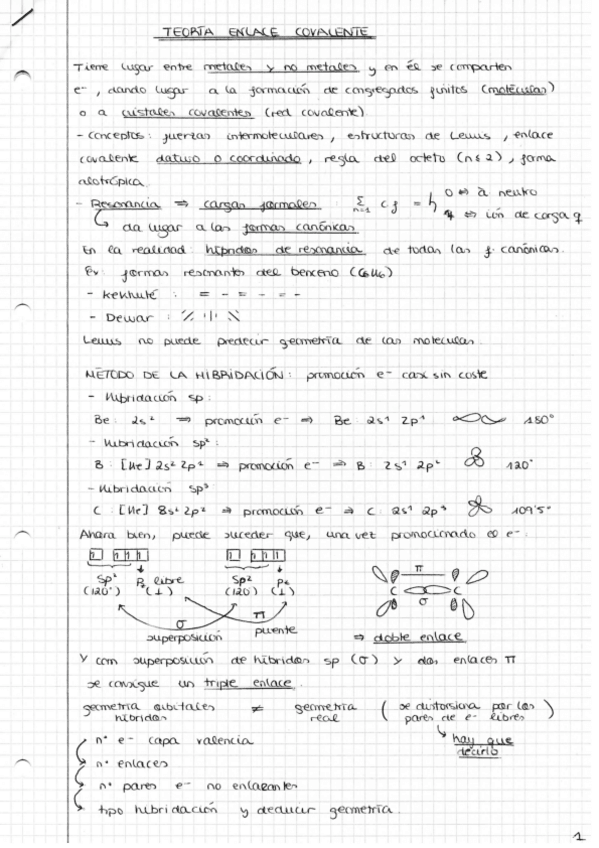 TEORÍA ENLACE COVALENTE
Tiene lugar entre metales y no metales y en él se comparten
e-, dando lugar a la formación de congregados finitos (moléculas)
o a cristales covalentes (red covalente)
- conceptos: fuerzas intermoleculares, estructuras de Lewis, enlace
covalente dativo o coordinado, regla del octeto (n≤2), forma
alotrópica.
- Resonancia ⇒ cargas formales: Σ n=1 cf = 0 ⇔ a neutro
q ⇔ ión de carga q
da lugar a las formas canónicas
En la realidad: híbridos de resonancia de todas las f. canónicas.
Ev: formas resonantes del benceno (C6H6)
- Kekhulé : = - = - = -
- Dewar :
Lewis no puede predecir geometría de las moléculas.
MÉTODO DE LA HIBRIDACIÓN: promoción e- casi sin coste
- Hibridación sp:
Be: 2s² ⇒ promoción e- ⇒ Be: 2s¹ 2p¹ 180°
- Hibridación sp²:
B: [He] 2s² 2p¹ ⇒ promoción e- ⇒ B: 2s¹ 2p² 120°
- Hibridación sp³
C: [He] 8s² 2p² ⇒ promoción e- ⇒ C: 2s¹ 2p³ 109'5°
Ahora bien, puede suceder que, una vez promocionado el e-:
1 1 1 1 1 1 1 1 π
Sp² Pz libre Sp² Pz C C
(120°) (⊥) (120°) (⊥) σ
σ π
superposición puente ⇒ doble enlace
Y com superposición de híbridos sp (σ) y dos enlaces π
se consigue un triple enlace.
geometría orbitales híbridos ≠ geometría real (se distorsiona por los pares de e- libres)
n° e- capa valencia hay que decirlo
n° enlaces
n° pares e- no enlazantes
tipo hibridación y deducir geometría.
1